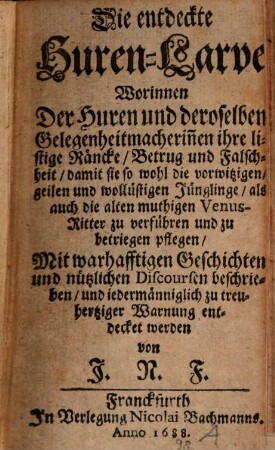 Die entdeckte
Huren-Larve
Worinnen
Der Huren und deroselben
Gelegenheitmacheriñen ihre li-
stige Räncke/ Betrug und Falsch-
heit/ damit sie so wohl die vorwitzigen/
geilen und wollüstigen Jünglinge/ als
auch die alten muthigen Venus-
Ritter zu verführen und zu
betriegen pflegen/
Mit warhafftigen Geschichten
und nützlichen Discoursen beschrie-
ben/ und iedermänniglich zu treu-
hertziger Warnung ent-
decket werden
von
J. N. F.
Franckfurth
In Verlegung Nicolai Bachmanns.
Anno 1688.